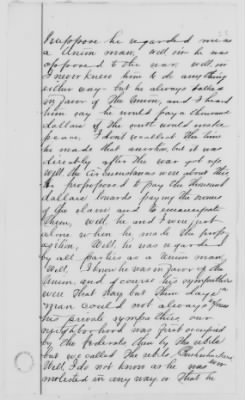 I suppose he regarded me as
a Union man, Well sir he was
opposed to the war, well sir
I never knew him to do anything
either way - but he always talked
in favor of the Union, and I heard
him say he would pay a thousand
dollars if the south would make
peace. I dont recollect the time
he made that assertion, but it was
directly after the war got up
Well, the circumstances were about this,
he proposed to pay the thousand
dollars towards paying the owners
of the slaves and to emancipate
them, well, he and I were
alone when he made the propo-
sition, Well, he was regarded
by all parties as a Union man
Well, I know he was in favor of the
Union, and of course his sympathies
were that way but them days a
man could not always express
his private sympathies, our
neighborhood was first occupied
by the federals then by the rebels
but we called the rebels Bushwhackers
Well, I do not know as he was ever
molested in any way or that he